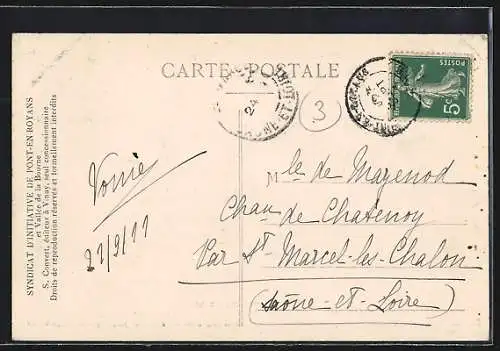 CARTE POSTALE
POSTES
5c
3
SYNDICAT D'INITIATIVE DE PONT-EN-ROYANS
et Vallée de la Bourne
S. Convert, éditeur à Vinay, seul concessionnaire
Droits de reproduction réservés et formellement interdits
21/9/11
M le de Mazenod
Chau de Chatenoy
Par St Marcel-les-Chalon
(Saône-et-Loire)